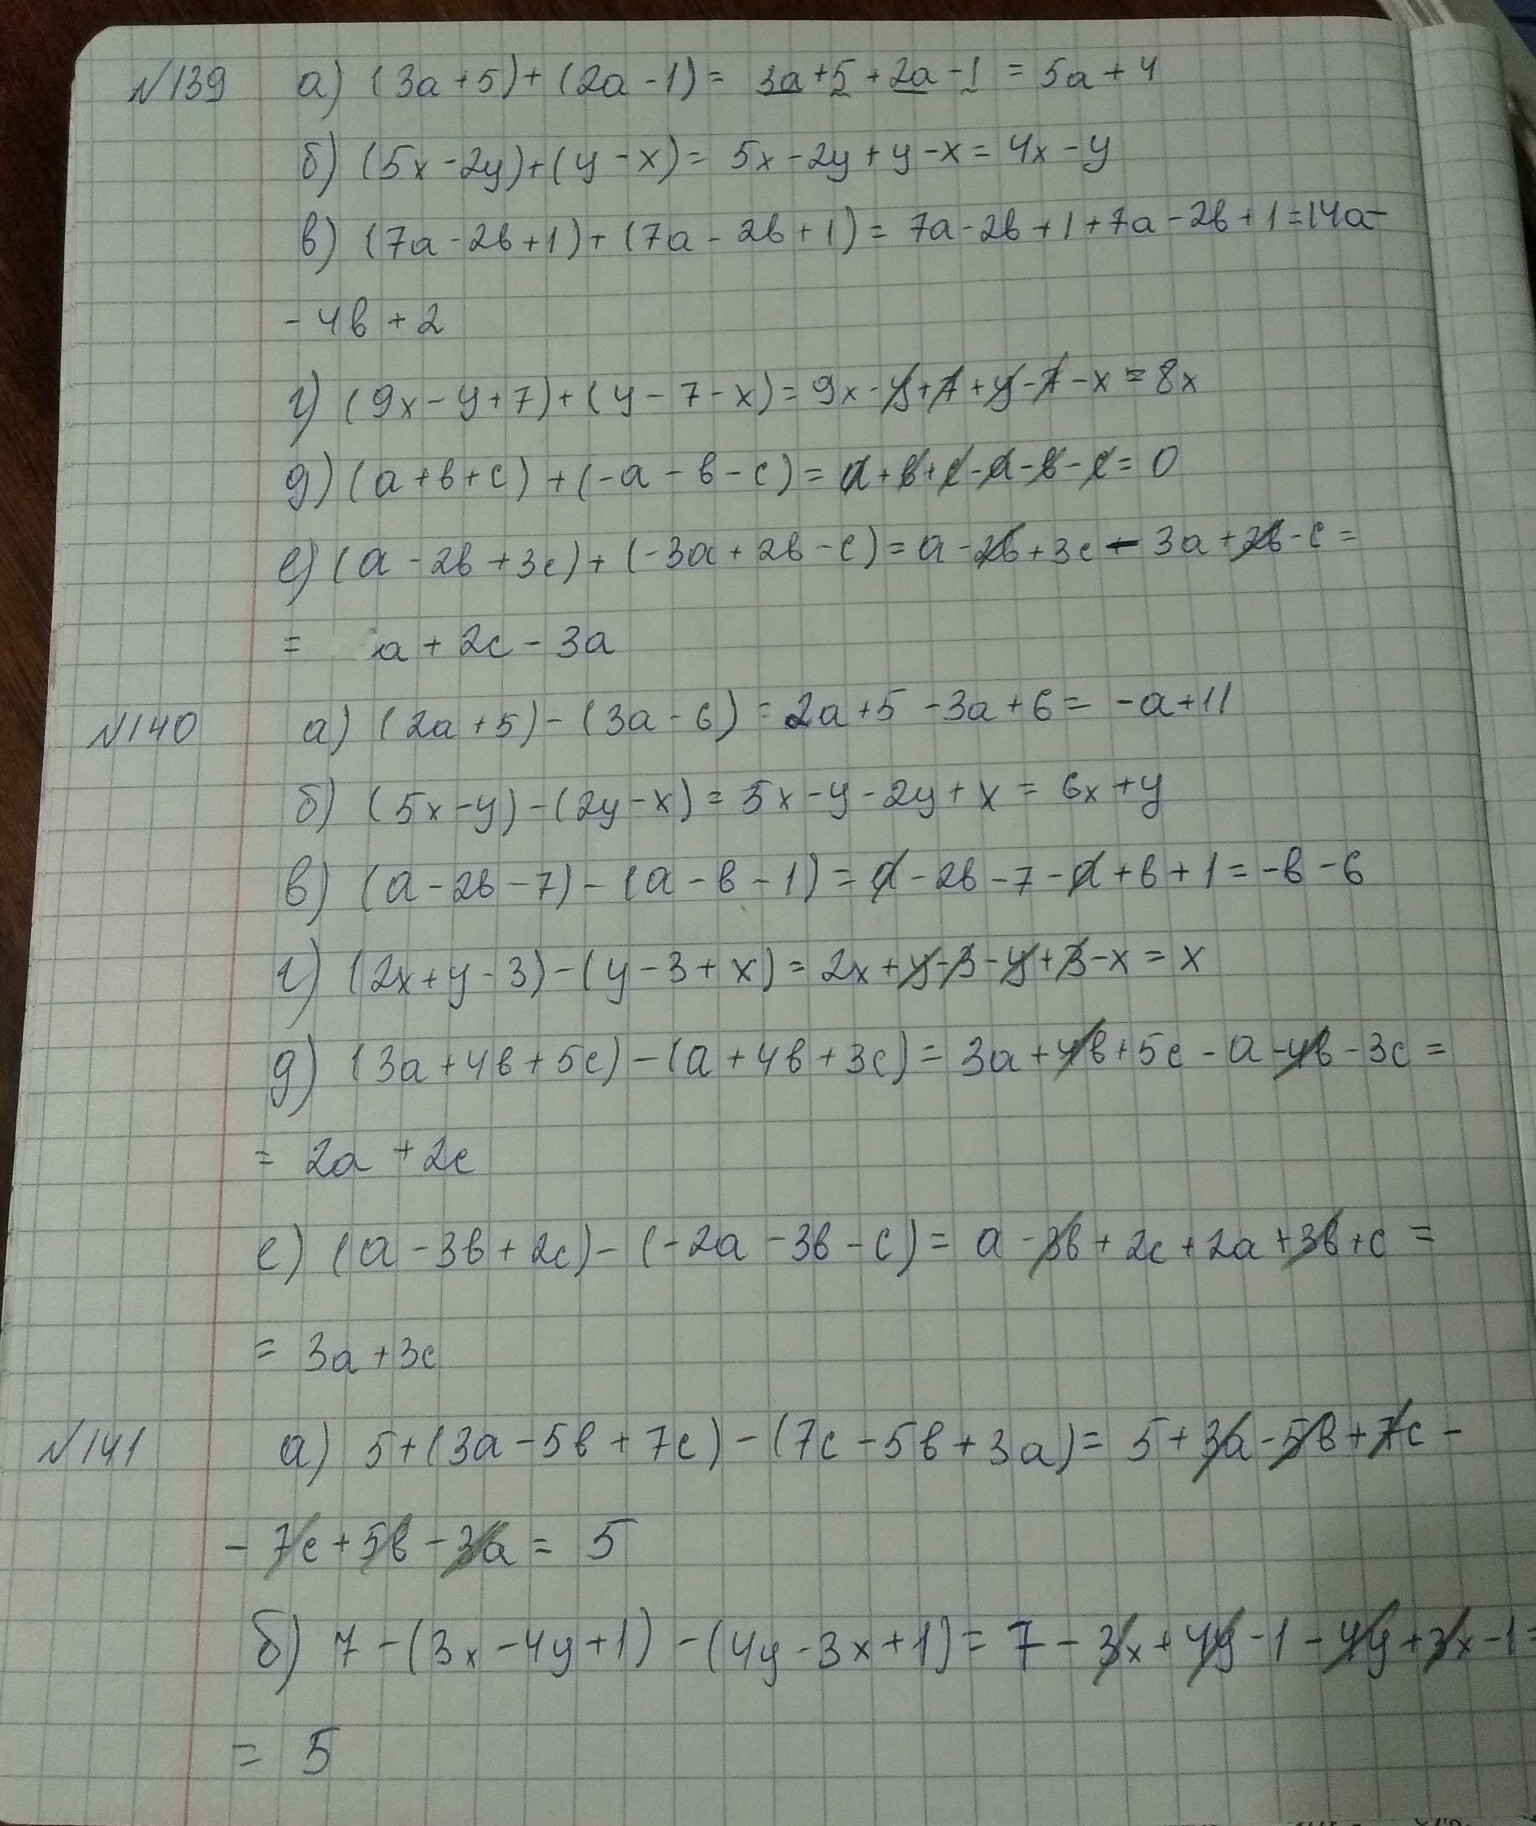 №139 а) (3a+5)+(2a-1)= 3a+5+2a-1 = 5a+4
б) (5x-2y)+(y-x)= 5x-2y+y-x=4x-y
в) (7a-2b+1)+(7a-2b+1)=7a-2b+1+7a-2b+1=14a-
-4b+2
г) (9x-y+7)+(y-7-x)=9x-y+7+y-7-x=8x
д) (a+b+c)+(-a-b-c)=a+b+c-a-b-c=0
е) (a-2b+3c)+(-3a+2b-c)=a-2b+3c-3a+2b-c=
= a+2c-3a
№140 а) (2a+5)-(3a-6)=2a+5-3a+6=-a+11
б) (5x-y)-(2y-x)=5x-y-2y+x=6x+y
в) (a-2b-7)-(a-b-1)=a-2b-7-a+b+1=-b-6
г) (2x+y-3)-(y-3+x)=2x+y-3-y+3-x=x
д) (3a+4b+5c)-(a+4b+3c)=3a+4b+5c-a-4b-3c=
= 2a+2c
е) (a-3b+2c)-(-2a-3b-c)=a-3b+2c+2a+3b+c=
= 3a+3c
№141 а) 5+(3a-5b+7c)-(7c-5b+3a)=5+3a-5b+7c-
-7c+5b-3a=5
б) 7-(3x-4y+1)-(4y-3x+1)=7-3x+4y-1-4y+3x-1=
= 5